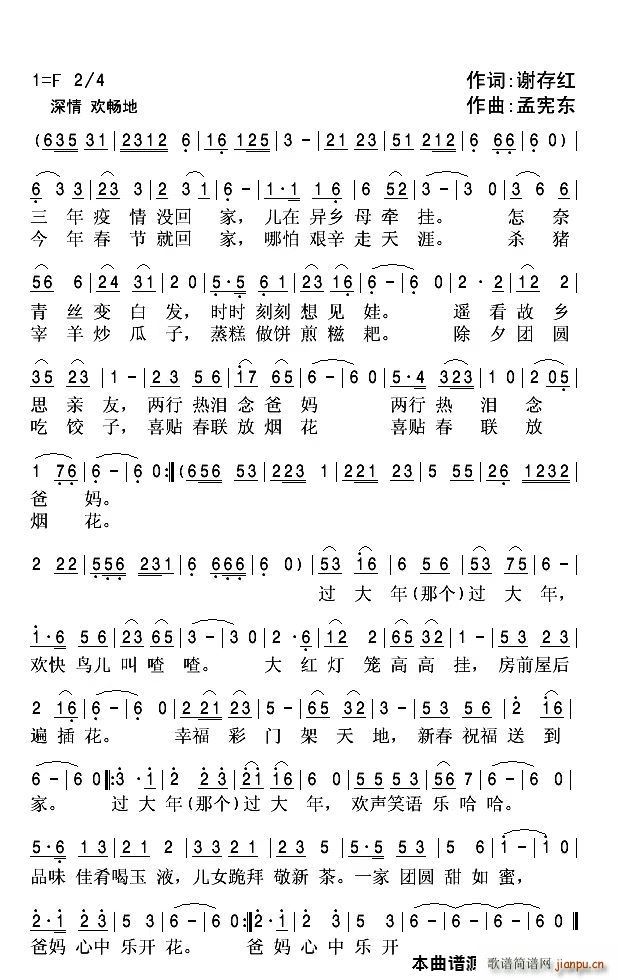 1=F 2/4 作词:谢存红
深情 欢畅地 作曲:孟宪东
(635 31|2312 6|16 125|3 -|21 23|51 212|6 66|6 0)|
6 3 3|23 3|2 31|6 -|1·1 16|6 52|3 -|3 0|3 6 6|
三 年 疫 情 没回 家, 儿在 异乡 母 牵 挂。 怎 奈
今 年 春 节 就回 家, 哪怕 艰辛 走 天 涯。 杀 猪
56 6|24 31|2 0|5·5 61|23 16|6 -|6 0|2· 2|12 2|
青 丝 变 白 发, 时时 刻刻 想 见 娃。 遥 看 故 乡
宰 羊 炒 瓜 子, 蒸糕 做饼 煎 糍 粑。 除 夕 团 圆
35 23|1 -|2 3 56|17 65|6 -|6 0|5·4 323|1 0|2 05|
思 亲 友, 两行 热泪 念 爸 妈 两行 热 泪 念
吃 饺 子, 喜贴 春联 放 烟 花 喜贴 春 联 放
1 76|6 -|6 0:‖(656 53|223 1|221 23|5 55|26 1232|
爸 妈。
烟 花。
2 22|556 231|6 666|6 0)|53 16|6 56|53 75|6 -|
过 大 年(那个)过 大 年,
1·6 56|23 65|3 -|3 0|2·6|12 2|65 32|1 -|53 23|
欢快 鸟儿 叫 喳 喳。 大 红 灯 笼 高 高 挂, 房前 屋后
2 16|6 -|6 0|2 21 23|3 -|65 32|3 -|53 52|2 16|
遍 插 花。 幸福 彩 门 架 天 地, 新春 祝福 送 到
6 -|6 0:|3·1|2 23|21 16|2 -|55 53|56 7|6 -|6 0|
家。 过 大 年(那个)过 大 年, 欢声 笑语 乐 哈 哈。
5·6 13|21 2|3 -|23 5|53 2|3 -|5·5 53|2 12|1 -|1 0|
品味 佳肴 喝玉 液, 儿女 跪拜 敬新 茶。一家 团圆 甜 如 蜜,
2·1 23|53 5|6 -|6 0:|2·1 23|5 -|5 -|6 -|6 -|6 0‖
爸妈 心中 乐开 花。 爸 妈 心中 乐 开
本曲谱源
歌谱简谱网
jianpu.cn